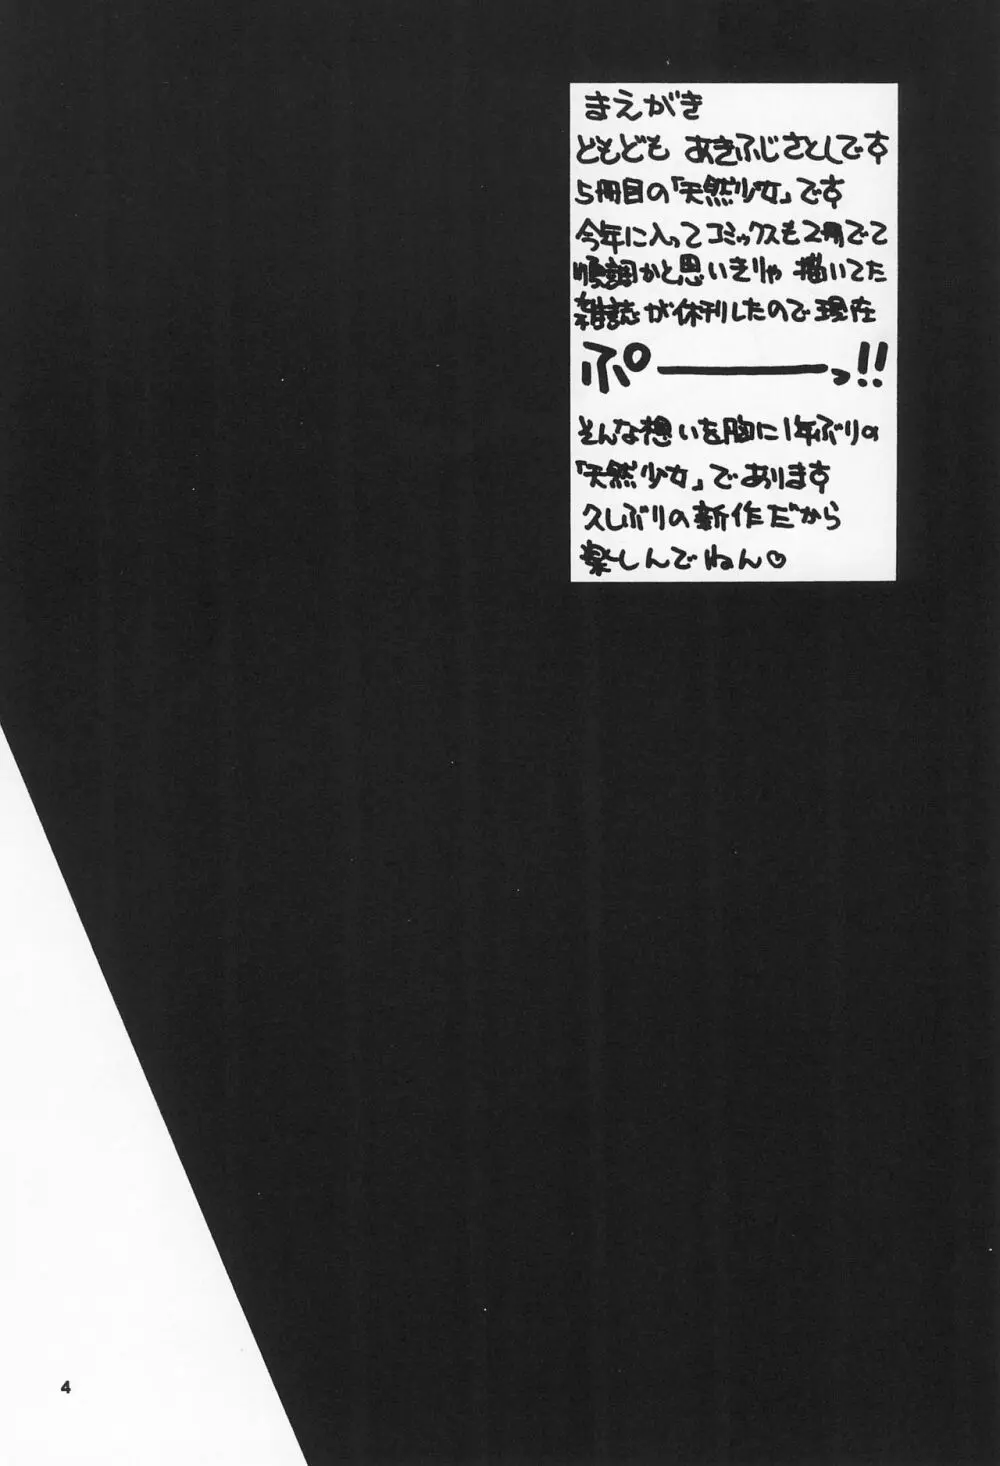 まえがき
ともども あきふじさとしです
5冊目の「天然少女」です
今年に入ってコミックスも2冊でて
順調かと思いきりゃ 描いてた
雑誌が休刊したので現在
ぷーーーーっ!!
そんな想いを胸に1年ぶりの
「天然少女」であります
久しぶりの新作だから
楽しんでねん♡
4